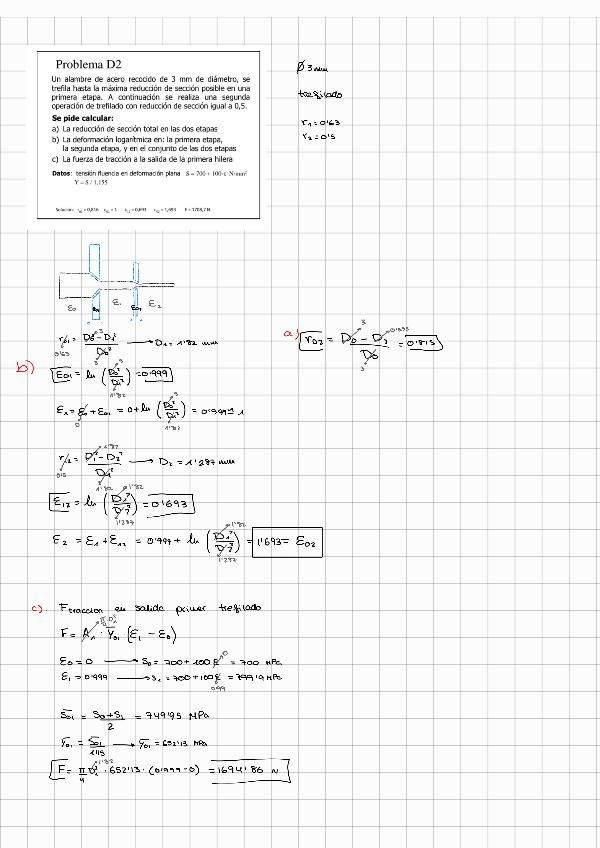 Problema D2
Un alambre de acero recocido de 3 mm de diámetro, se
trefila hasta la máxima reducción de sección posible en una
primera etapa. A continuación se realiza una segunda
operación de trefilado con reducción de sección igual a 0,5.
Se pide calcular:
a) La reducción de sección total en las dos etapas
b) La deformación logarítmica en: la primera etapa,
la segunda etapa, y en el conjunto de las dos etapas
c) La fuerza de tracción a la salida de la primera hilera
Datos: tensión fluencia en deformación plana S = 700 + 100·ε N/mm²
Y = S / 1,155
Solución: r₀₂ = 0,816 ε₀₁ = 1 ε₁₂ = 0,693 ε₀₂ = 1,693 F = 1708,7 N
Ø 3mm
trefilado
r₁ = 0'63
r₂ = 0'5
ε₀ ε₁ ε₂
a) r₀₂ = D₀ - D₂ / D₀ = 0'815
r₁ = D₀² - D₁² / D₀² → D₁ = 1'82 mm
0'63
b)
ε₀₁ = ln (D₀² / D₁²) = 0'999
1'82
ε₁ = ε₀ + ε₀₁ = 0 + ln (D₀² / D₁²) = 0'999 ≈ 1
0 1'82
r₂ = D₁² - D₂² / D₁² → D₂ = 1'287 mm
0'5 1'82
ε₁₂ = ln (D₁² / D₂²) = 0'693
1'82
1'287
ε₂ = ε₁ + ε₁₂ = 0'999 + ln (D₁² / D₂²) = 1'693 = ε₀₂
1'82
1'287
c) Ftraccion en salida primer trefilado
F = A₁ · Y̅₀₁ · (ε₁ - ε₀)
ε₀ = 0 → S₀ = 700 + 100 ε = 700 MPa
ε₁ = 0'999 → S₁ = 700 + 100 ε = 799'9 MPa
S̅₀₁ = S₀ + S₁ / 2 = 749'95 MPa
Y̅₀₁ = S̅₀₁ / 1'15 → Y̅₀₁ = 652'13 MPa
F = π/4 D₁² · 652'13 · (0'999 - 0) = 1694'86 N
1'82